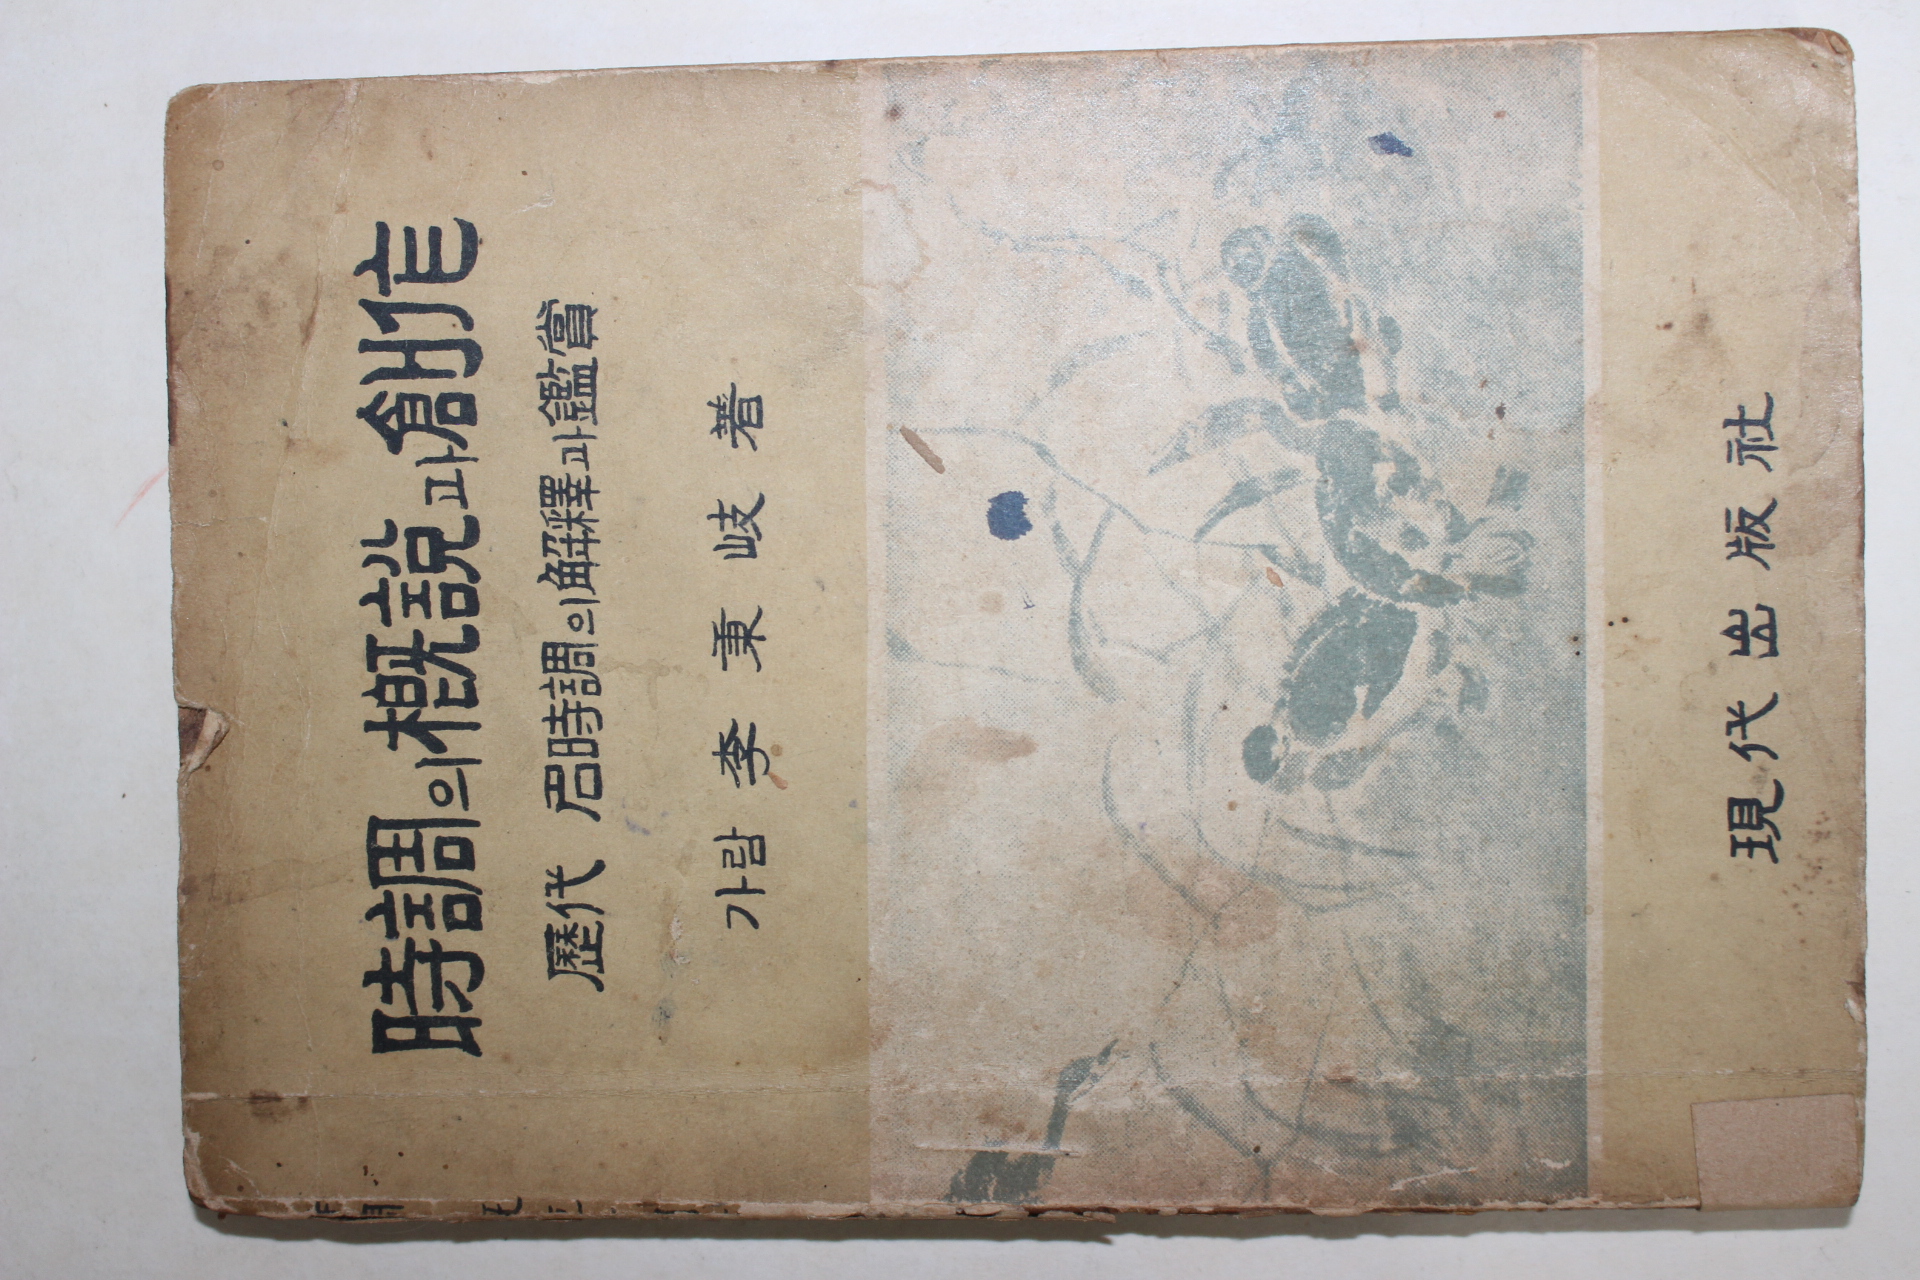 時調의槪說과創作
歷代 君時調의解釋과鑑賞
가람 李秉岐 著
現代出版社